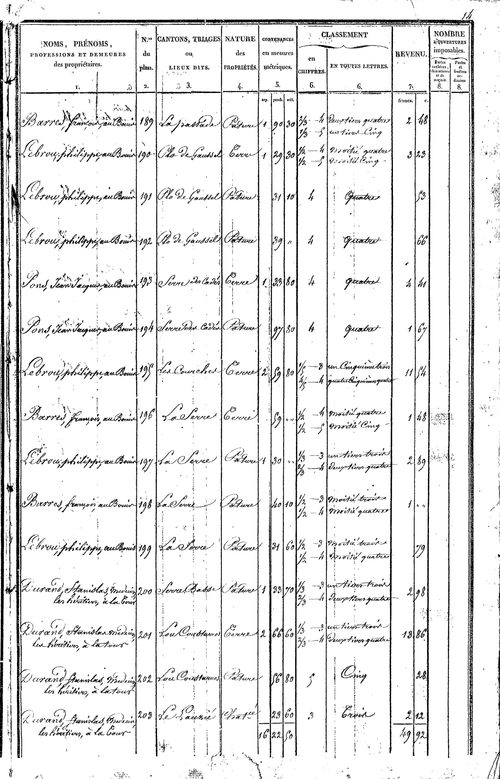 14
NOMS, PRÉNOMS, PROFESSIONS ET DEMEURES des propriétaires. | N.os du plan. | CANTONS, TRIAGES ou LIEUX DITS. | NATURE des PROPRIÉTÉS. | CONTENANCES en mesures métriques. | CLASSEMENT en CHIFFRES. | EN TOUTES LETTRES. | REVENU. | NOMBRE D'OUVERTURES imposables.
1. | 2. | 3. | 4. | 5. | 6. | 6. | 7. | 8. | 8.
arp. | perch. | mèt. | francs. | c.
Barres, françois, au Bouir | 189 | La passade | Pature | 1 | 90 | 30 | 2/3 - 4 Deux tiers quatre | 2 | 48
1/3 - 5 un tiers Cinq
Lebrou, philippe, au Bouir | 190 | Plo de Gaussel | Terre | 1 | 29 | 30 | 1/2 - 4 Moitié quatre | 3 | 23
1/2 - 5 Moitié Cinq
Lebrou, philippe, au Bouir | 191 | Plo de Gaussel | Pature | 31 | 10 | 4 | Quatre | 53
Lebrou, philippe, au Bouir | 192 | Plo de Gaussel | Pature | 39 | " | 4 | Quatre | 66
Pons, Jean Jacques, au Bouir | 193 | Serre des Cades | Terre | 1 | 23 | 80 | 4 | Quatre | 4 | 41
Pons, Jean Jacques, au Bouir | 194 | Serre des Cades | Pature | 97 | 80 | 4 | Quatre | 1 | 67
Lebrou, philippe, au Bouir | 195 | Les Courches | Terre | 2 | 59 | 80 | 1/5 - 3 un Cinquième trois | 11 | 54
4/5 - 4 quatre Cinquièmes quatre
Barres, françois, au Bouir | 196 | La Serre | Terre | 59 | .. | 1/2 - 4 Moitié quatre | 1 | 48
1/2 - 5 Moitié Cinq
Lebrou, philippe, au Bouir | 197 | La Serre | Pature | 1 | 30 | .. | 1/3 - 3 un tiers trois | 2 | 89
2/3 - 4 Deux tiers quatre
Barres, françois, au Bouir | 198 | La Serre | Pature | 40 | 10 | 1/2 - 3 Moitié trois | 1 | ..
1/2 - 4 Moitié quatre
Lebrou, philippe, au Bouir | 199 | La Serre | Pature | 31 | 60 | 1/2 - 3 Moitié trois | 79
1/2 - 4 Moitié quatre
Durand, Stanislas, médecin | 200 | Serre Basse | Pature | 1 | 33 | 70 | 1/3 - 3 un tiers trois | 2 | 98
les héritiers, à la tour | 2/3 - 4 Deux tiers quatre
Durand, Stanislas, médecin | 201 | Lou Coustans | Terre | 2 | 66 | 60 | 1/3 - 3 un tiers trois | 13 | 86
les héritiers, à la tour | 2/3 - 4 Deux tiers quatre
Durand, Stanislas, médecin | 202 | Lou Coustans | Pature | 56 | 80 | 5 | Cinq | 28
les héritiers, à la tour
Durand, Stanislas, médecin | 203 | 23 | 60 | 3 | Trois | 2 | 12
les héritiers, à la tour | 16 | 22 | 50 | 49 | 92